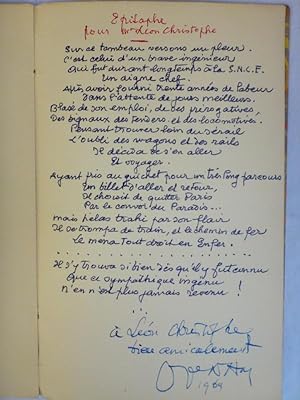 Epitaphe
pour Mr Léon Christophe
Sur ce tombeau versons un pleur.
C'est celui d'un brave ingénieur
Qui fut durant longtemps à la S.N.C.F.
Un digne chef.
Après avoir fourni trente années de labeur
Dans l'attente de jours meilleurs.
Blasé de son emploi, de ses prérogatives,
Des signaux des tenders et des locomotives.
Pensant trouver loin du sérail
L'oubli des wagons et des rails
Il décida de s'en aller
Et voyager.
Ayant pris au guichet pour un très long parcours
Un billet d'aller et retour,
Il choisit de quitter Paris
Par le convoi du Paradis...
mais hélas trahi par son flair
Il se trompa de train, et le chemin de fer
Le mena tout droit en Enfer.
Il s'y trouva si bien dès qu'il y fut connu
Que ce sympathique ingénu
N'en n'est plus jamais revenu !
à Léon Christophe
bien amicalement
1964